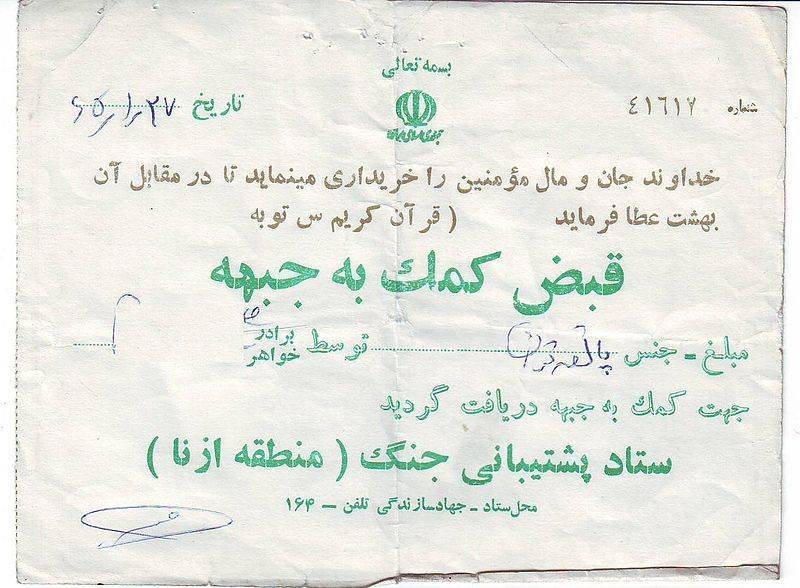 بسمه تعالی
شماره ۴۱۶۱۷
تاریخ ۲۷ر۱ر۶۵
جمهوری اسلامی ایران
خداوند جان و مال مؤمنین را خریداری مینماید تا در مقابل آن
بهشت عطا فرماید ( قرآن کریم س توبه
قبض کمك به جبهه
مبلغ ـ جنس توسط برادر
خواهر
جهت کمك به جبهه دریافت گردید
ستاد پشتیبانی جنگ ( منطقه ازنا )
محل ستاد ـ جهادسازندگی تلفن ــ ۱۶۴